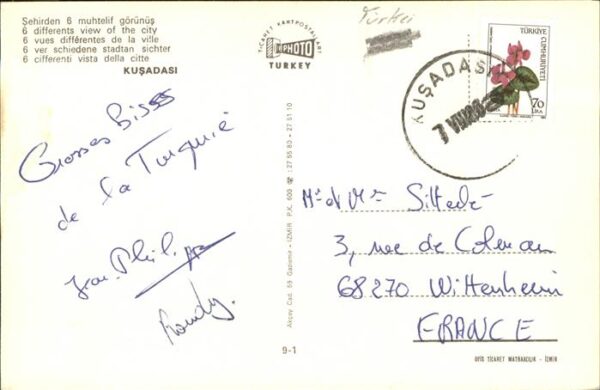 Şehirden 6 muhtelif görünüş
6 differents view of the city
6 vues différentes de la ville
6 ver schiedene stadtan sichter
6 cifferenti vista della citte
KUŞADASI
TİCARET KARTPOSTALLARI
PHOTO
TURKEY
Türkei
TÜRKİYE
CUMHURİYETİ
70
LİRA
KUŞADASI
7 VIII
Grosses Bisses
de la Turquie
Jean-Philippe
Roudy.
Akçay Cad. 59 Gaziemir - İZMİR P.K. 600 ☎: 27 55 80 - 27 51 10
Mr et Mme
3, rue de Colmar
68270 Wittenheim
FRANCE
9-1
OFİS TİCARET MATBAACILIK - İZMİR